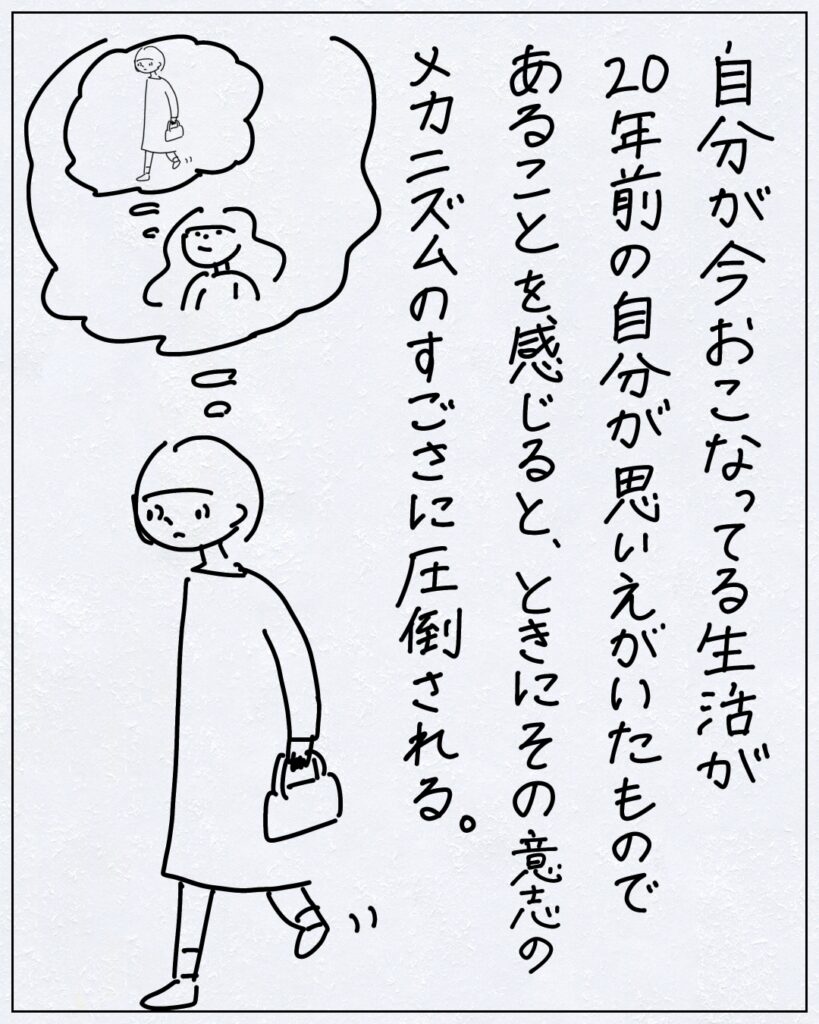 自分が今おこなってる生活が
20年前の自分が思いえがいたもので
あることを感じると、ときにその意志の
メカニズムのすごさに圧倒される。